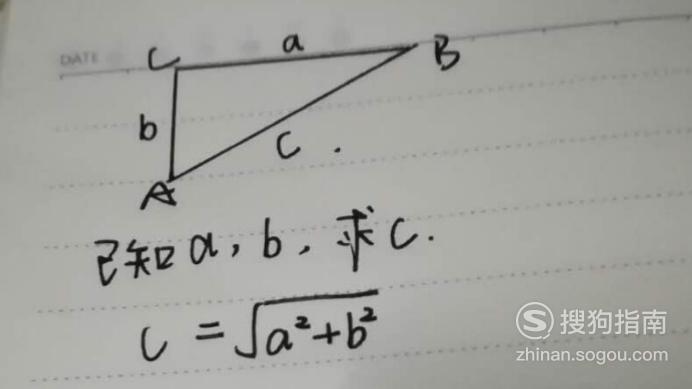 DATE
C a B
b
c.
A
已知a, b, 求c.
c = √a²+b²
搜狗指南
zhinan.sogou.com